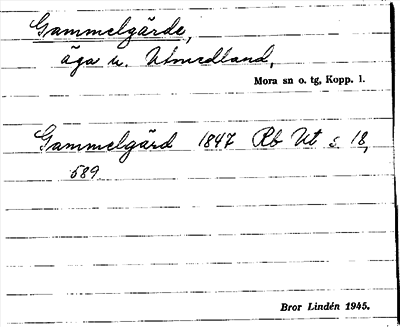 Gammelgärde,
äga u. Utmedland,
Mora sn o. tg, Kopp. l.
Gammelgärd 1847 Rb Ut s 18,
589
Bror Lindén 1945.